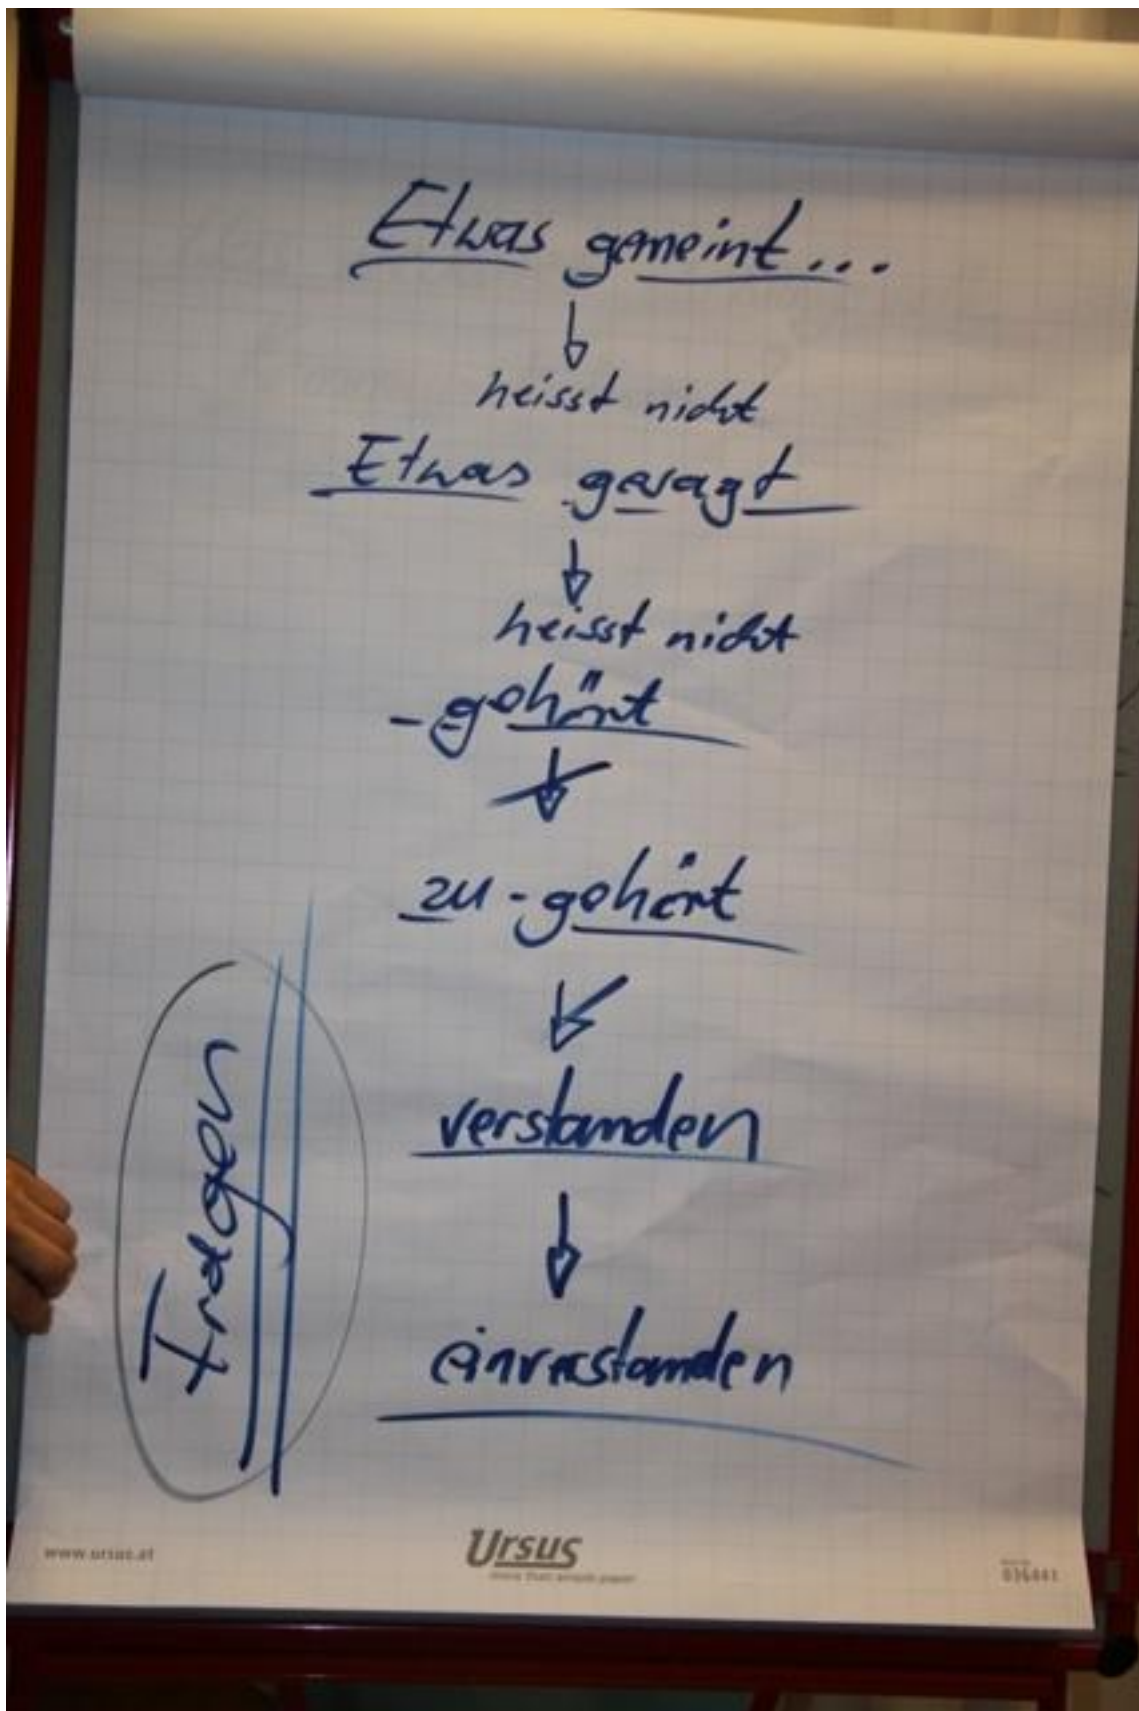 Etwas gemeint...
heisst nicht
Etwas gesagt
heisst nicht
- gehört
zu - gehört
verstanden
einverstanden
Fragen
www.ursus.at
Ursus
more than simple paper